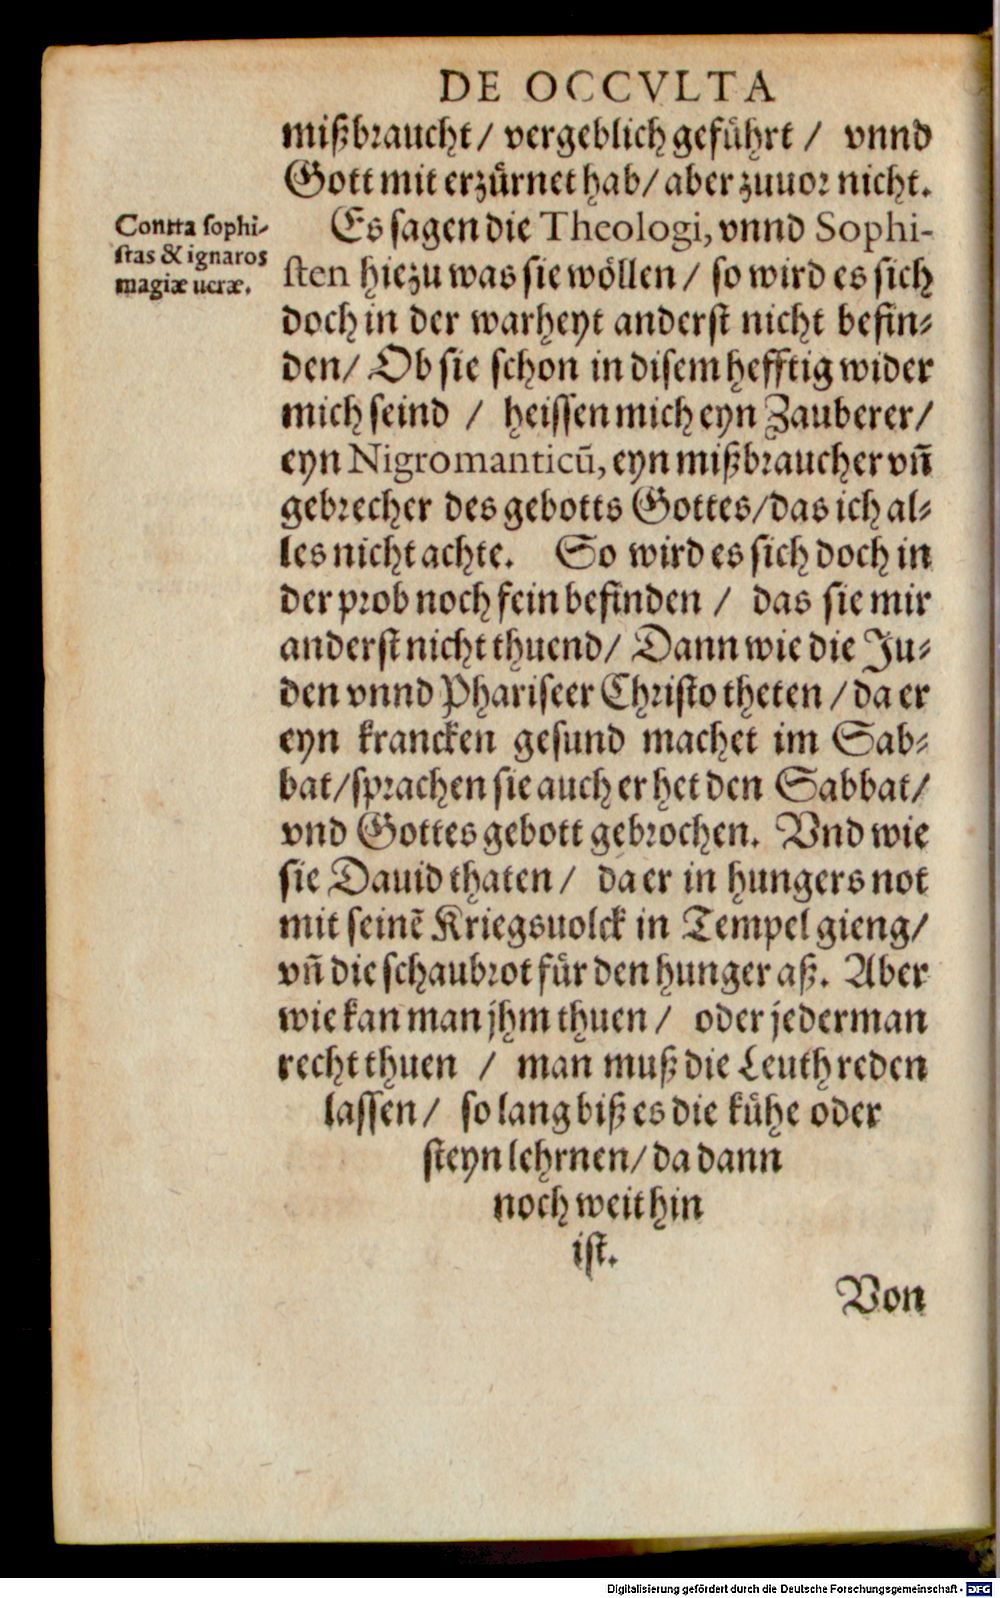 DE OCCVLTA
mißbraucht/ vergeblich gefuͤhrt / vnnd
Gott mit erzuͤrnet hab/ aber zuuor nicht.
Contra sophi-
stas & ignaros
magiæ ueræ.
Es sagen die Theologi, vnnd Sophi-
sten hiezu was sie woͤllen/ so wird es sich
doch in der warheyt anderst nicht befin-
den/ Ob sie schon in disem hefftig wider
mich seind / heissen mich eyn Zauberer/
eyn Nigromanticū, eyn mißbraucher vñ
gebrecher des gebotts Gottes/ das ich al-
les nicht achte. So wird es sich doch in
der prob noch fein befinden / das sie mir
anderst nicht thuend/ Dann wie die Ju-
den vnnd Phariseer Christo theten / da er
eyn krancken gesund machet im Sab-
bat/ sprachen sie auch er het den Sabbat/
vnd Gottes gebott gebrochen. Vnd wie
sie Dauid thaten/ da er in hungers not
mit seinē Kriegsuolck in Tempel gieng/
vñ die schaubrot fuͤr den hunger aß. Aber
wie kan man jhm thuen/ oder jederman
recht thuen / man muß die Leuth reden
lassen/ so lang biß es die kuͤhe oder
steyn lehrnen/ da dann
noch weit hin
ist.
Von
Digitalisierung gefördert durch die Deutsche Forschungsgemeinschaft - DFG